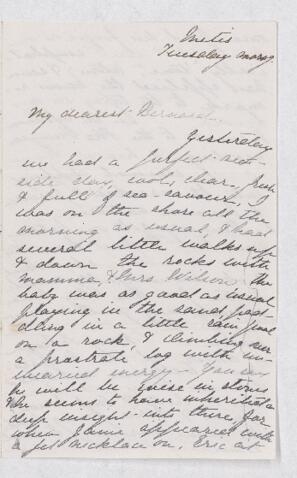 Metis
Tuesday morng.
My dearest Bernard.
Yesterday
we had a perfect sea-
side day, cool, clear, fresh
& full of sea-savour. I
was on the shore all the
morning as usual, & had
several little walks up
& down the rocks with
mamma & Mrs. Wilson. The
baby was as good as usual
playing in the sand, pad-
dling in a little rain pool
on a rock, & climbing over
a prostrate log with un-
wearied energy - You say
he will be wise in
& he seems to have inherited a
deep insight into them, for
when Janie appeared with
a jet necklace on, Eric at